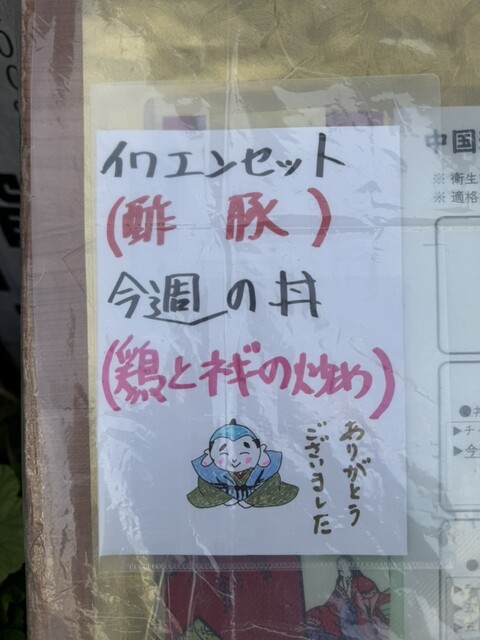 イワエンセット
(酢豚)
今週の丼
(鶏とネギの炒め)
ありがとう
ございました
中国
※ 衛生
※ 適格